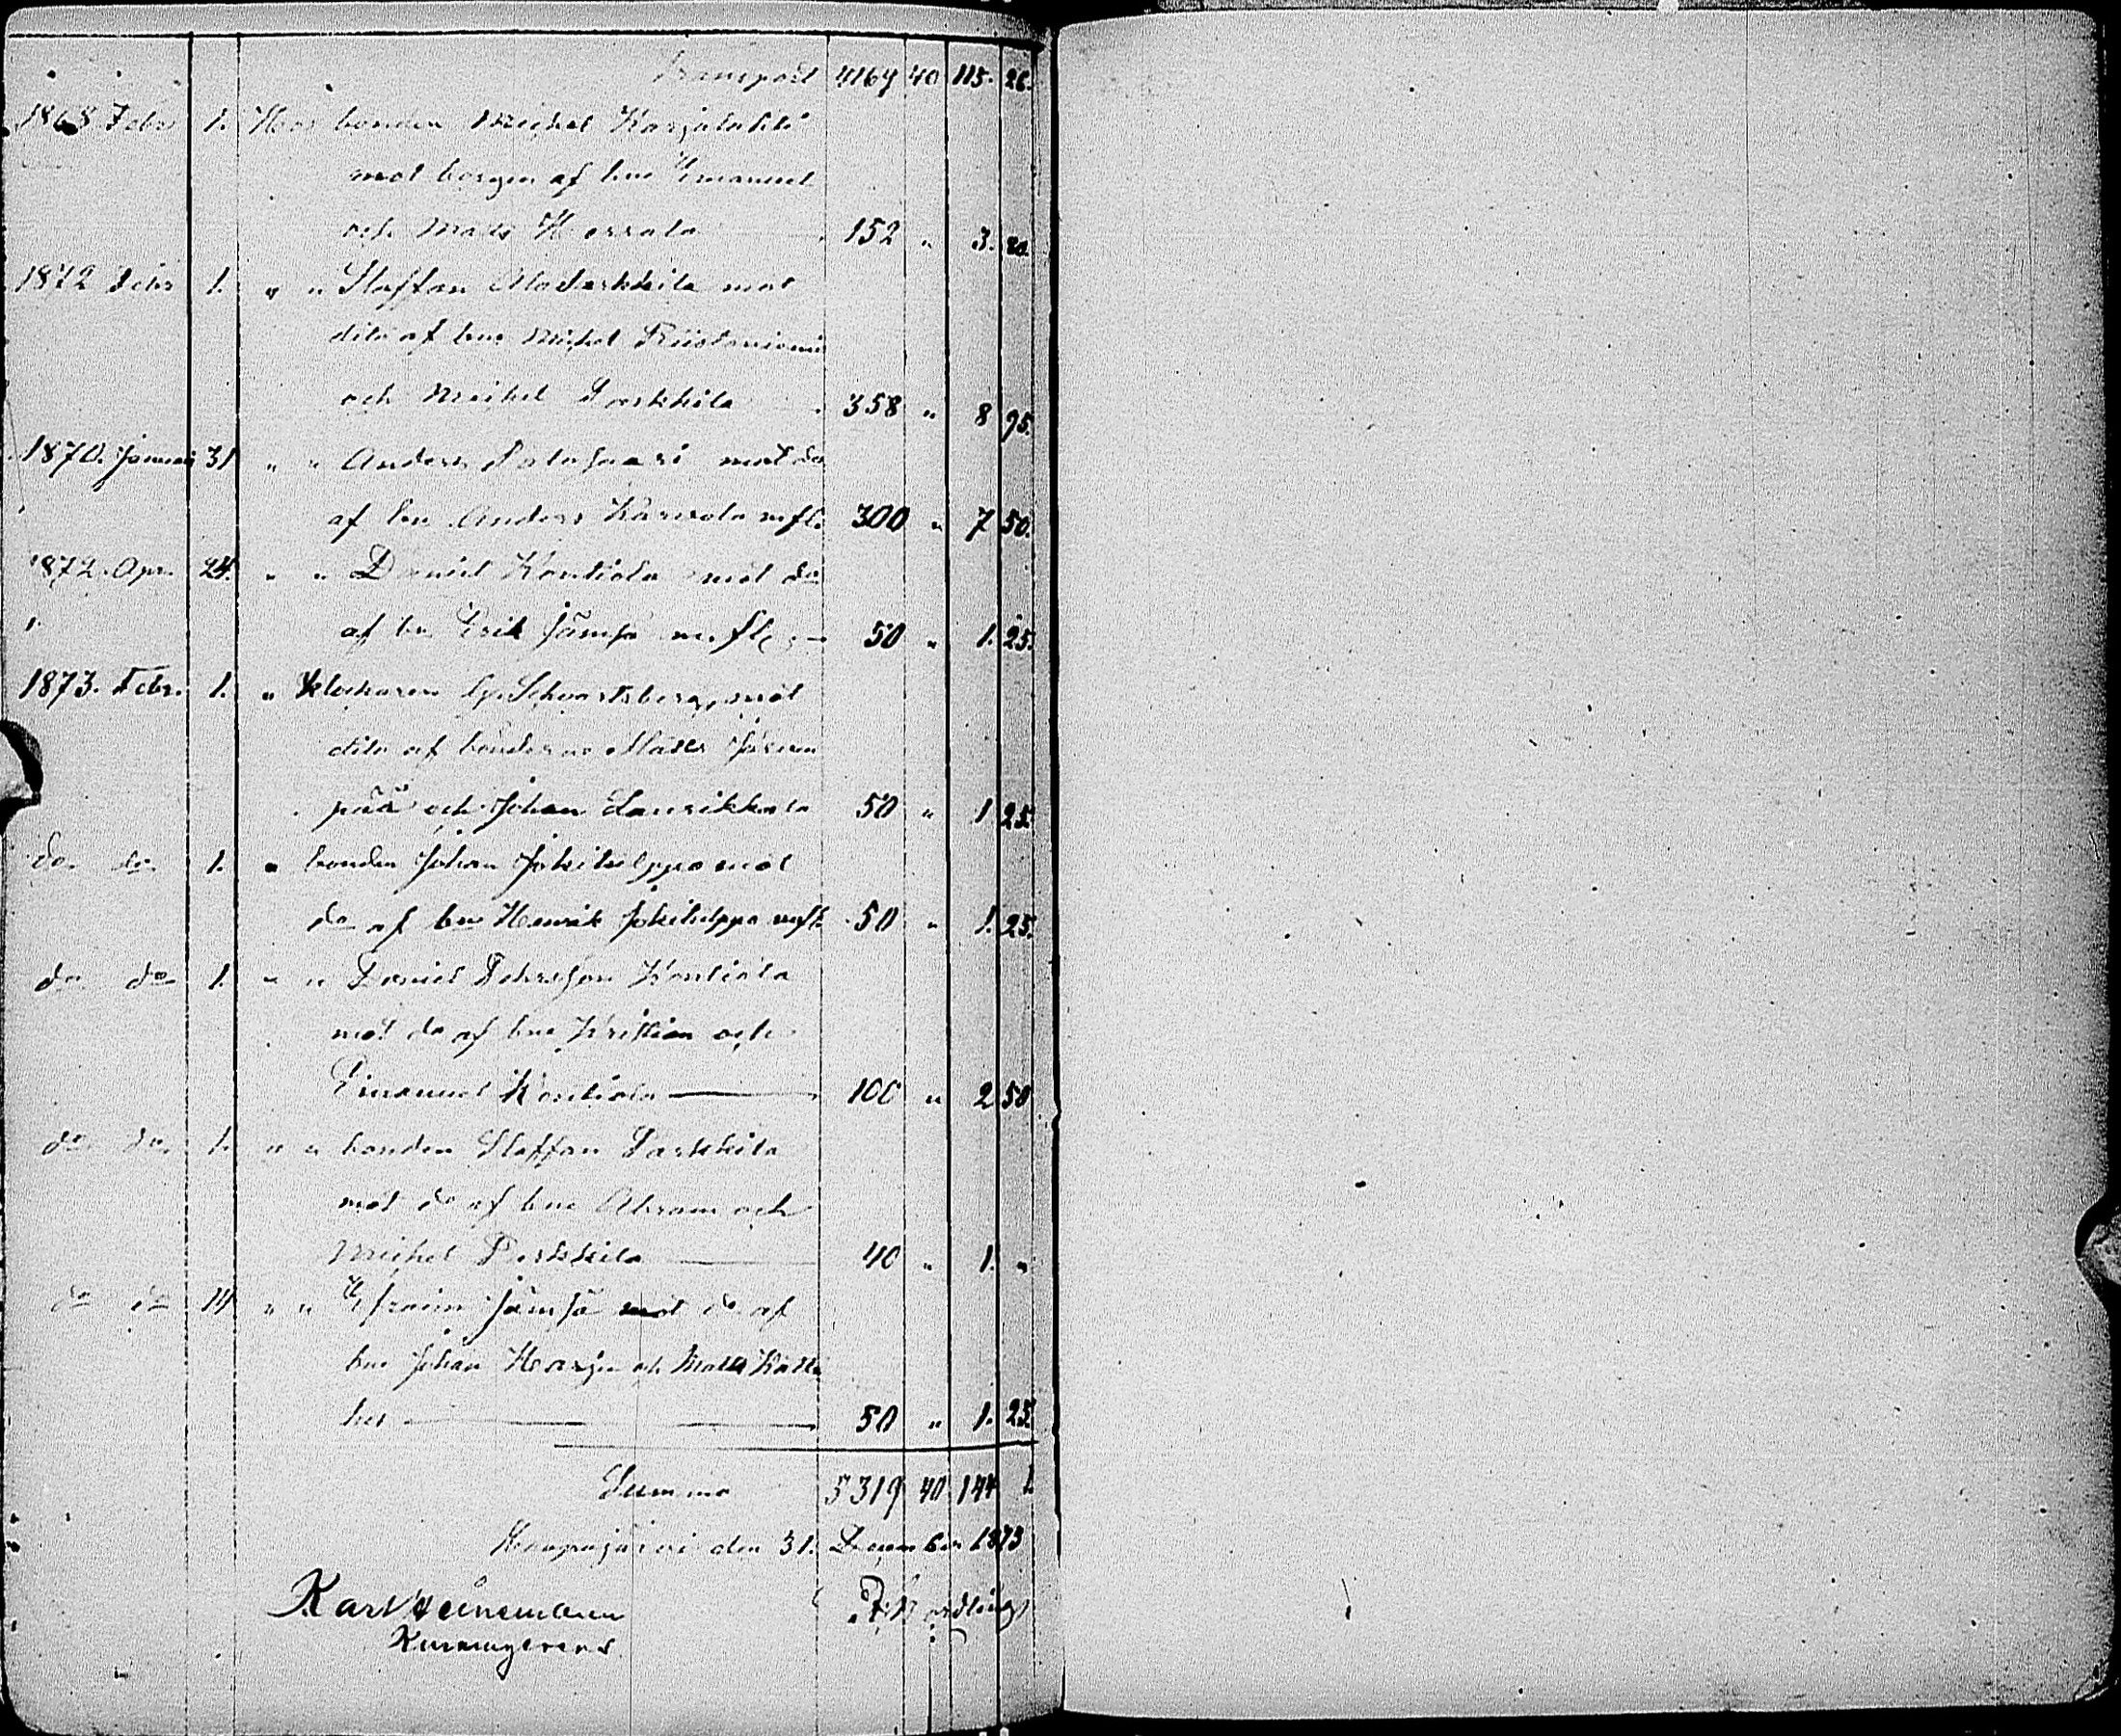 Transport 4169 40 115. 26.
1868 Febr 1. Hos bonden Michel Karjalahti
mot borgen af bne Emanuel
och Matts Herrala 152 " 3. 80.
1872 Febr 1. " " Staffan Ala Parkkila mot
dito af bne Michel
och Michel Parkkila 358 " 8 95.
1870. Januari 31 " " Anders Palosaari mot do
af bn Anders Karvola m fl. 300 " 7 50.
1872. Apr. 24. " " Daniel Kontiola mot do
af bn Erik Jämsä m. fl. — 50 " 1. 25.
1873. Febr. 1. " klockaren G. Schvartsberg, mot
dito af bönderne Matts Järven
pää och Johan Laurikkala 50 " 1 25.
do do 1. " bonden Johan Jokitulppo mot
do af bn Henrik Jokitulppo m fl. 50 " 1. 25.
do do 1. " " Daniel Pehrsson Kontiola
mot do af bne Kristian och
Emanuel Kontiola — 100 " 2 50
do do 1. " " bonden Staffan Parkkila
mot do af bne Abram och
Michel Parkkila — 40 " 1. "
do do 14 " " Efraim Jämsä mot do af
bne Johan och Matts
— 50 " 1. 25.
Summa 5319 40 144 1.
Haapajärvi den 31. December 1873
Karl Heineman
P. Nordling